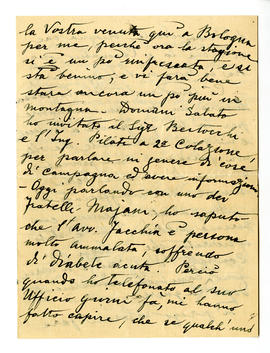 la Vostra venuta qui a Bologna
per me, perchè ora la stagione
si è un pò rinfrescata, e si
sta benino, e vi farà bene
stare ancora un pò più in
montagna. - Domani Sabato
ho invitato il Sigr Bertocchi
e l'Ing. Pilati a 2a Colazione,
per parlare in genere di cose
di Campagna ed avere informazioni
- Oggi parlando con uno dei
fratelli Majani, ho saputo
che l'Avv. Jacchia è persona
molto ammalata, soffrendo
di Diabete acuta. Perciò
quando ho telefonato al suo
Ufficio giorni fa, mi hanno
fatto capire, che se qualch'uno